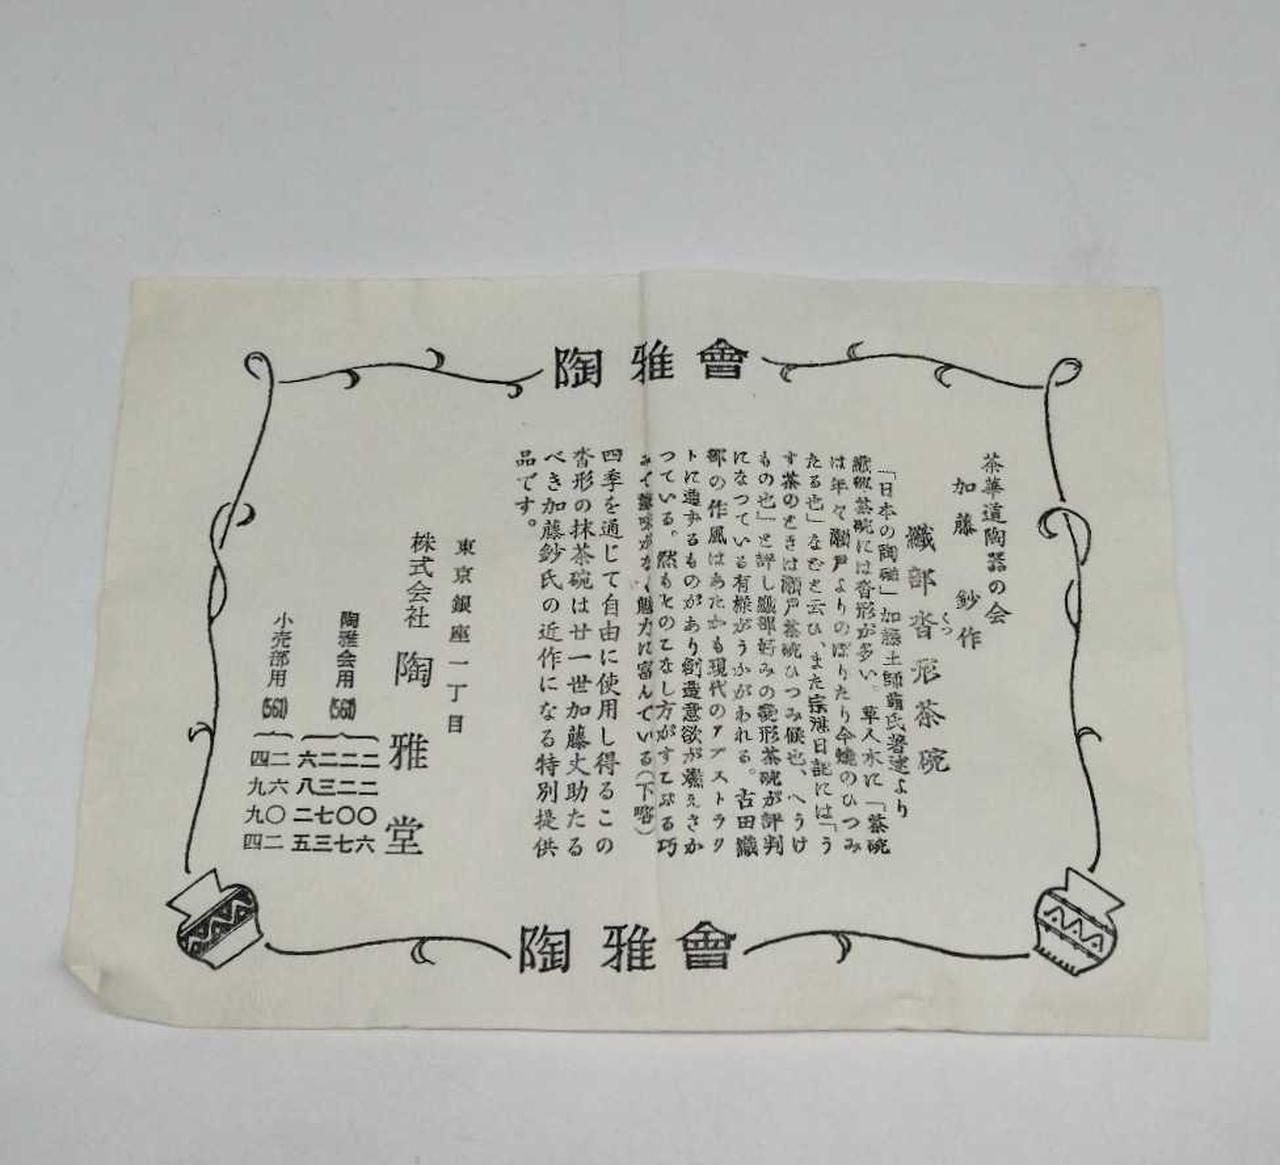 陶雅會
茶華道陶器の会
加藤 鈔作
織部沓形茶碗
くつ
「日本の陶磁」加藤土師萌氏著述より
織部茶碗には沓形が多い。草人木に「茶碗
は年々瀬戸よりのぼりたり今焼のひつみ
たる也」などと云ひ、また宗湛日記には「う
す茶のときは瀬戸茶碗ひつみ候也、へうけ
もの也」と評し織部好みの変形茶碗が評判
になつている有様がうかがわれる。古田織
部の作風はあたかも現代のアブストラク
トに通ずるものがあり創造意欲が燃えさか
つている。然もそのこなし方がすこぶる巧
みで嫌味がなく魅力に富んでいる(下略)
四季を通じて自由に使用し得るこの
沓形の抹茶碗は廿一世加藤丈助たる
べき加藤鈔氏の近作になる特別提供
品です。
東京銀座一丁目
株式会社 陶雅堂
陶雅会用(561)
二二〇六
二二〇七
二三七三
六八二五
小売部用(561)
二六〇二
四九九四
陶雅會